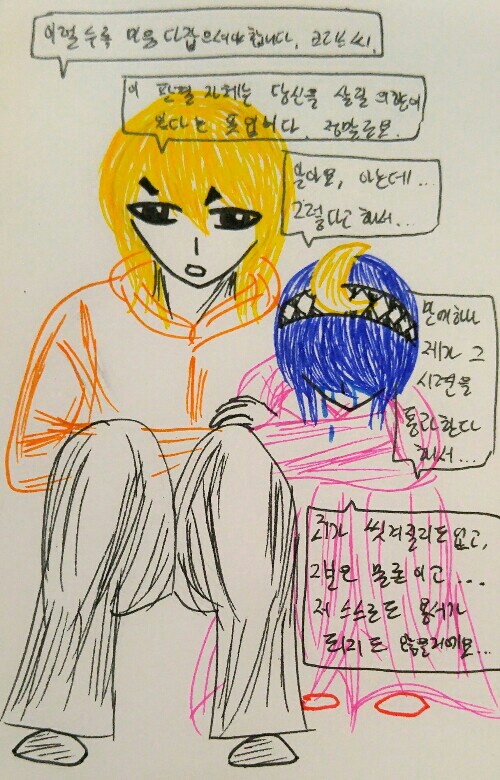 이럴수록 마음 다잡으셔야 합니다.
이 판결 자체는 당신을 살릴 의향이
있다는 뜻입니다. 정말로요.
알아요, 아는데...
그렇다고 해서...
만에 하나
제가 그
시련을
통과한다
해서...
죄가 씻겨질리도 없고,
그분은 물론이고...
제 스스로도 용서가
되리도 않을거에요...